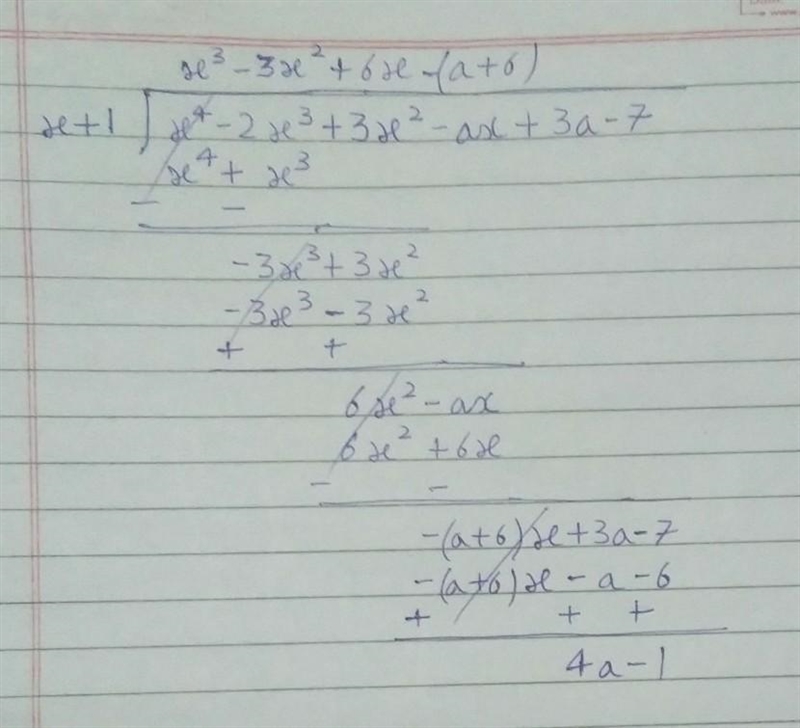 x³ - 3x² + 6x -(a+6)
x+1 ) x⁴ - 2x³ + 3x² - ax + 3a - 7
x⁴ + x³
- -
-3x³ + 3x²
-3x³ - 3x²
+ +
6x² - ax
6x² + 6x
- -
-(a+6)x + 3a - 7
-(a+6)x - a - 6
+ + +
4a - 1